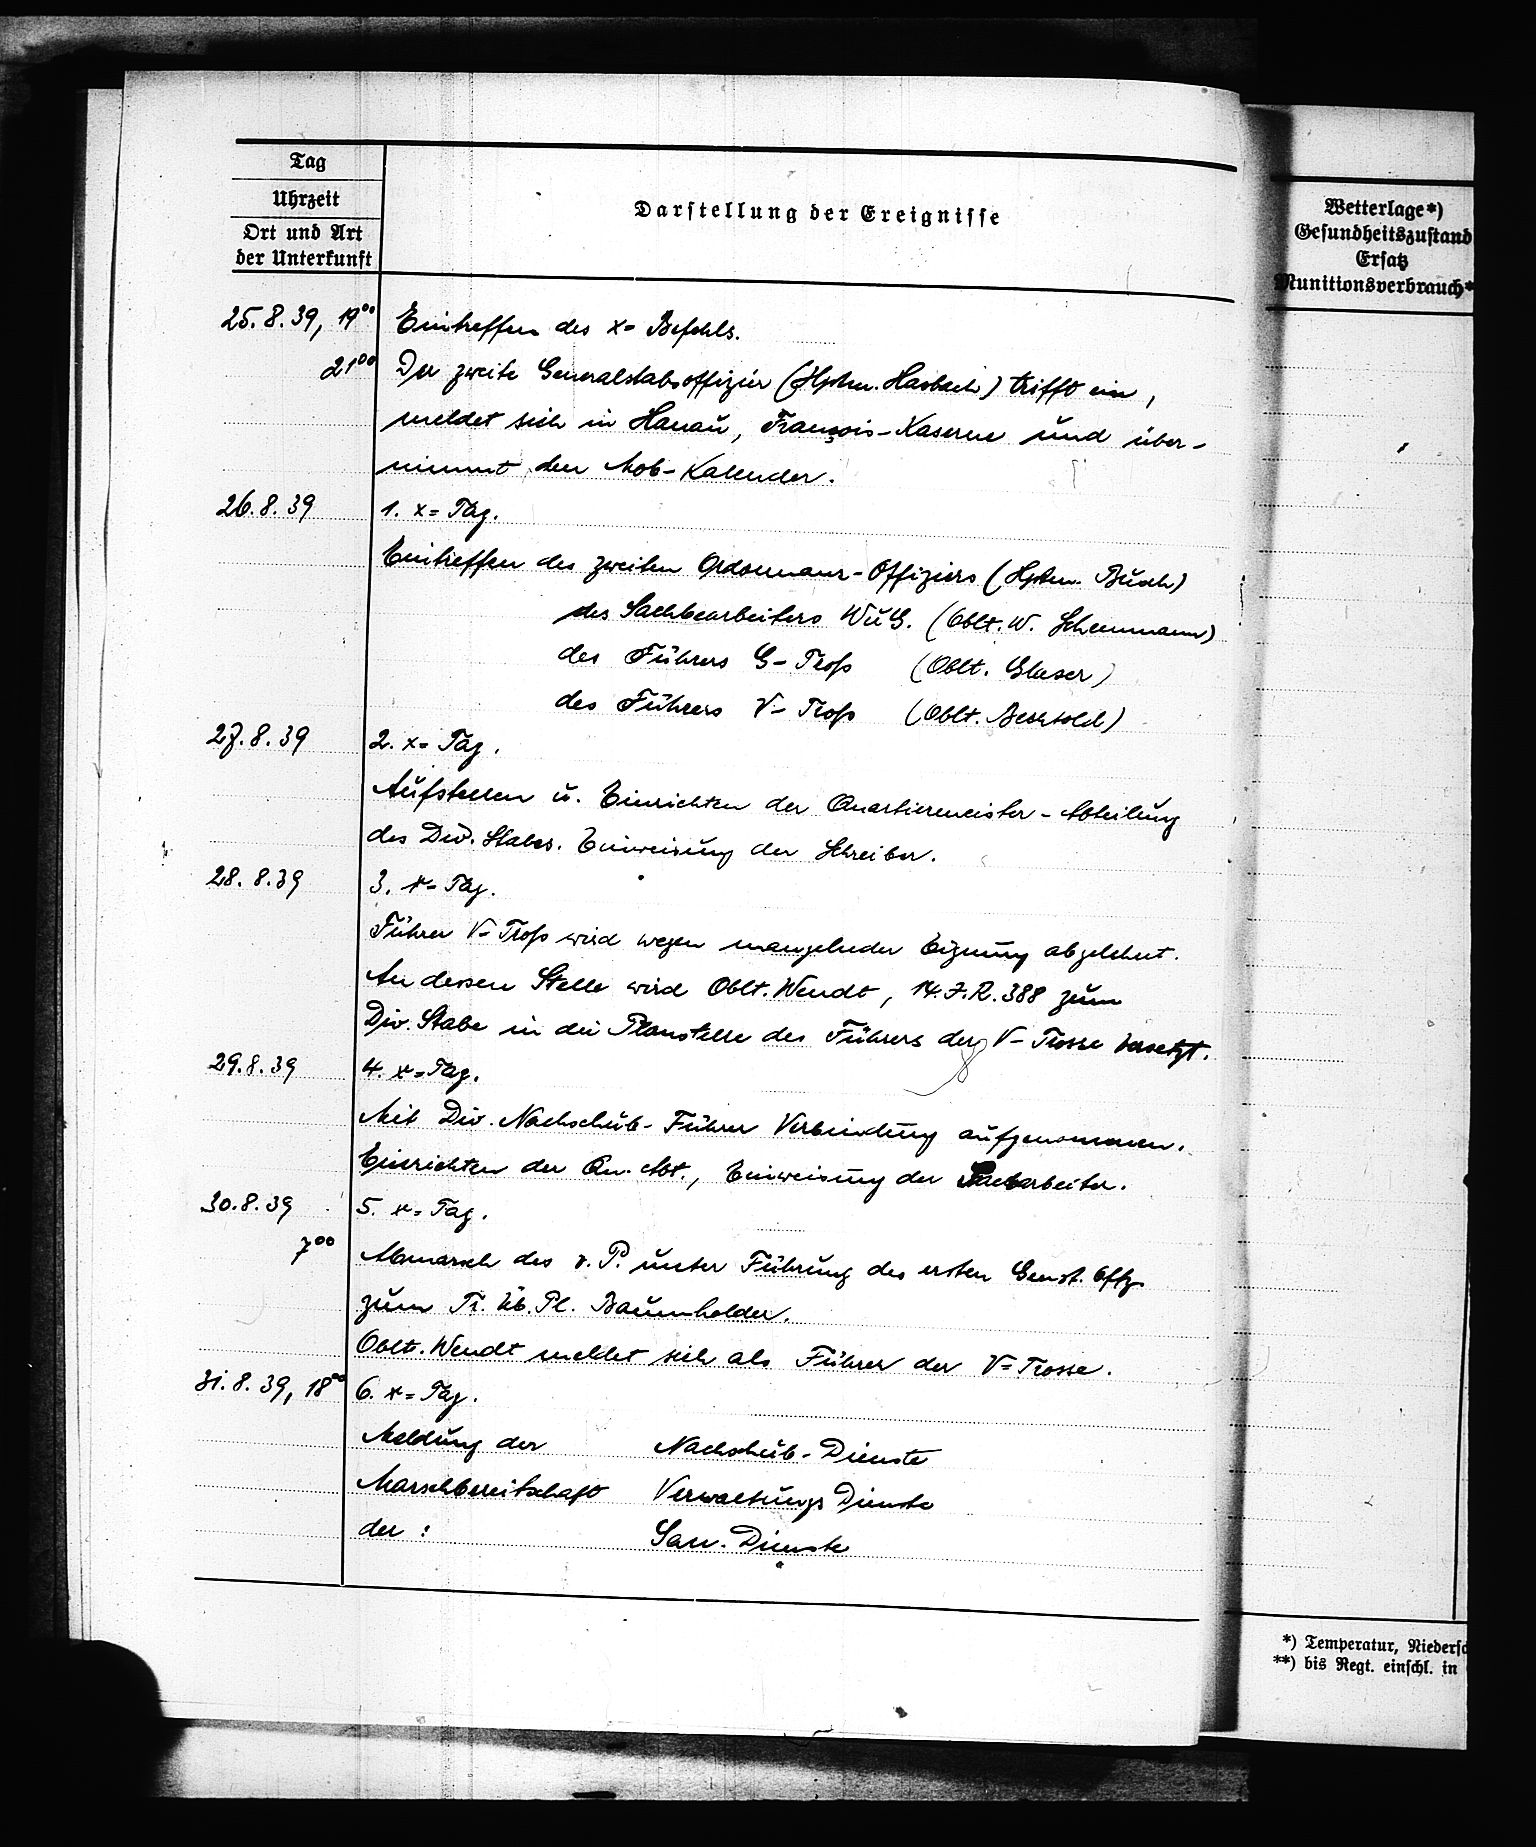 Tag
Uhrzeit
Ort und Art
der Unterkunft
Darstellung der Ereignisse
Wetterlage*)
Gesundheitszustand
Ersatz
Munitionsverbrauch*
25.8.39, 19⁰⁰ Eintreffen des x= Befehls.
21⁰⁰ Der zweite Generalstabsoffizier (Hptm. Hasbach) trifft ein,
meldet sich in Hanau, François-Kaserne und über-
nimmt den Mob-Kalender.
26.8.39 1. x= Tag.
Eintreffen des zweiten Ordonnanz-Offiziers (Hptm. Buch)
des Sachbearbeiters WuG. (Oblt. W. Schemmann)
des Führers G-Troß (Oblt. Glaser)
des Führers V-Troß (Oblt. Bechtold)
27.8.39 2. x= Tag.
Aufstellen u. Einrichten der Quartiermeister-Abteilung
des Div. Stabes. Einweisung der Schreiber.
28.8.39 3. x= Tag.
Führer V-Troß wird wegen mangelnder Eignung abgelehnt.
An dessen Stelle wird Oblt. Wendt, 14.J.R.388 zum
Div. Stabe in die Planstelle des Führers der V-Trosse versetzt.
29.8.39 4. x= Tag.
Mit Div. Nachschub-Führer Verbindung aufgenommen.
Einrichten der Qu. Abt., Einweisung der Sacharbeiter.
30.8.39 5. x= Tag.
7⁰⁰ Abmarsch des v.P. unter Führung des ersten Genst. Offz
zum Tr. Üb. Pl. Baumholder.
Oblt. Wendt meldet sich als Führer der V=Trosse.
31.8.39, 18⁰⁰ 6. x= Tag.
Meldung der Nachschub-Dienste
Marschbereitschaft Verwaltungs Dienste
der : San. Dienste
*) Temperatur, Niedersc
**) bis Regt. einschl. in